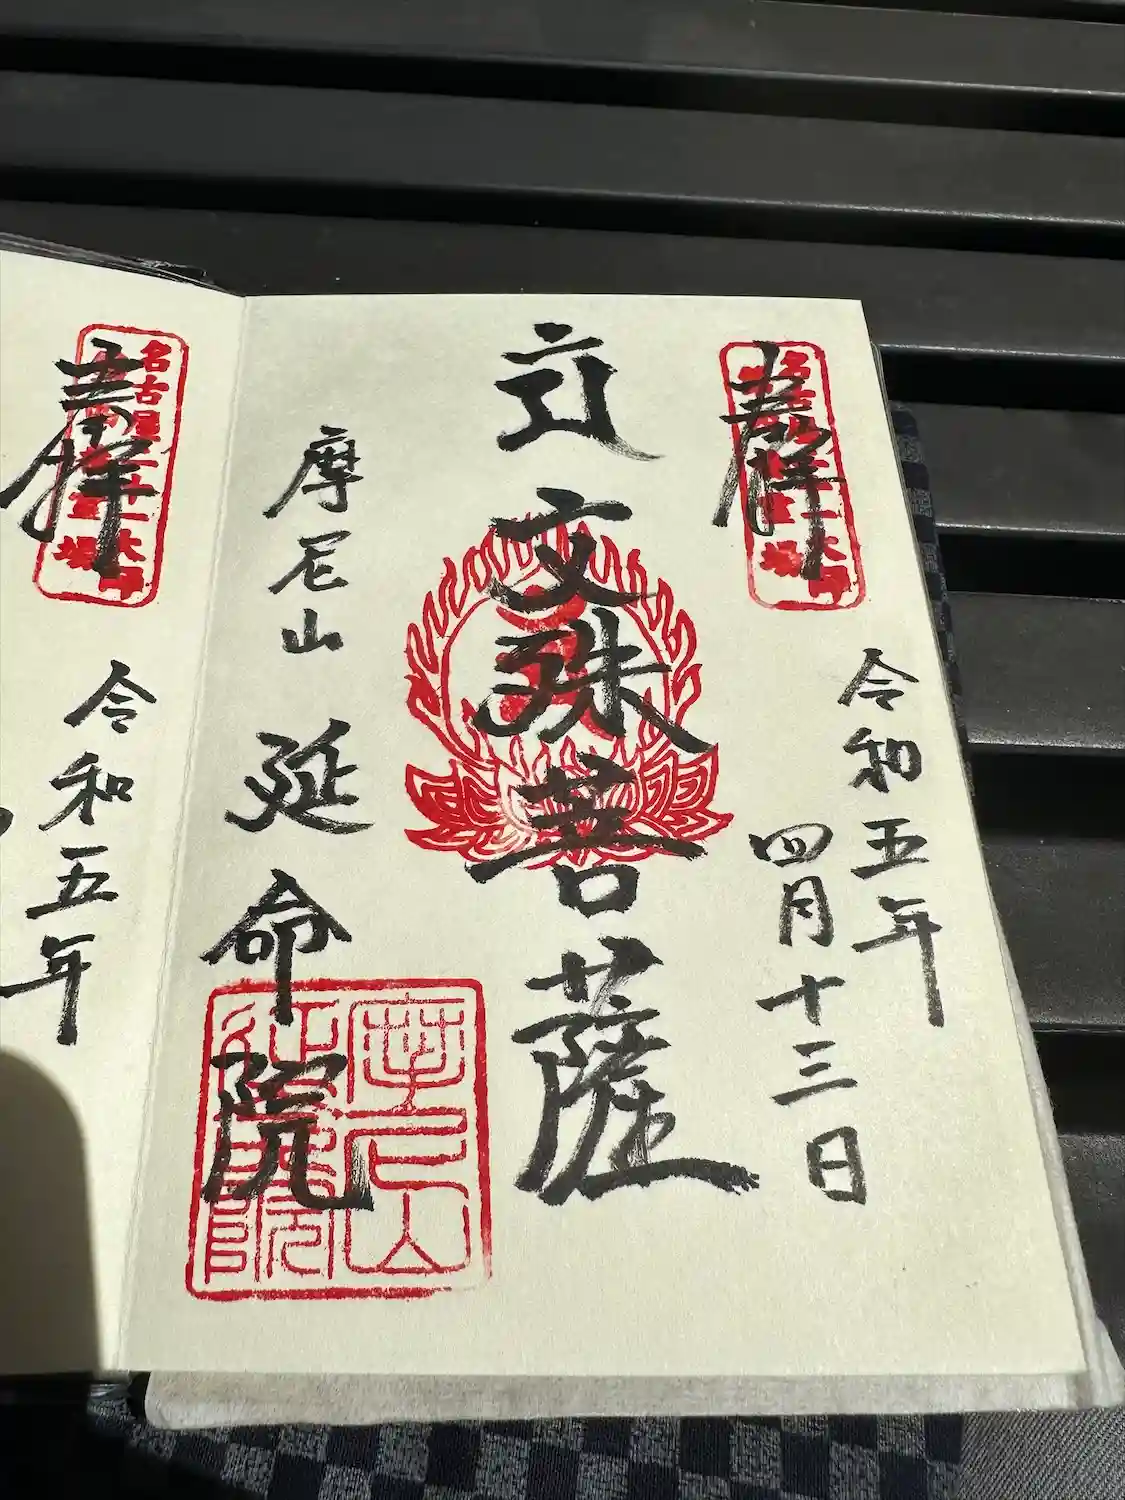 奉拝
名古屋二十一大師
令和五年
四月十三日
文殊菩薩
摩尼山 延命院
摩尼山
延命院
奉拝
名古屋二十一大師
令和五年